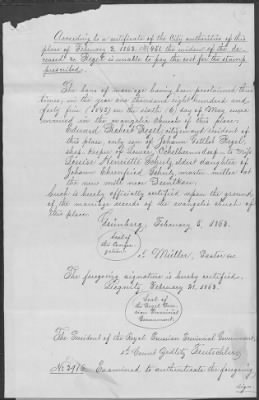 According to a certificate of the City authorities of this
place of February 3, 1863. No 451 the widow of the de-
ceased Fezel is unable to pay the cost for the stamp
prescribed.
The bans of marriage having been proclaimed three
times, in the year one thousand eight hundred and
forty five (1845) on the sixth (6) day of May were
married in the evangelic church of this place:
Eduard Robert citizen and resident of
this place, only son of Johann Gottlob
shop keeper of Lower to Miss
Louise Henriette Schulz, eldest daughter of
Johann Ehrenfried Schulz, master miller at
the new mill near
Such is hereby officially certified upon the ground
of the marriage records of the evangelic church of
this place.
Grünberg, February 5, 1863.
Seal of
the Congre
gation
s/. Müller, Pastor
The foregoing signature is hereby certified.
Liegnitz, February 21, 1863.
Seal of
the Royal Prus-
sian Provincial
Government.
The President of the Royal Prussian Provincial Government,
s/. Count Zedlitz
No. 2916. Examined to authenticate the foregoing
sign-